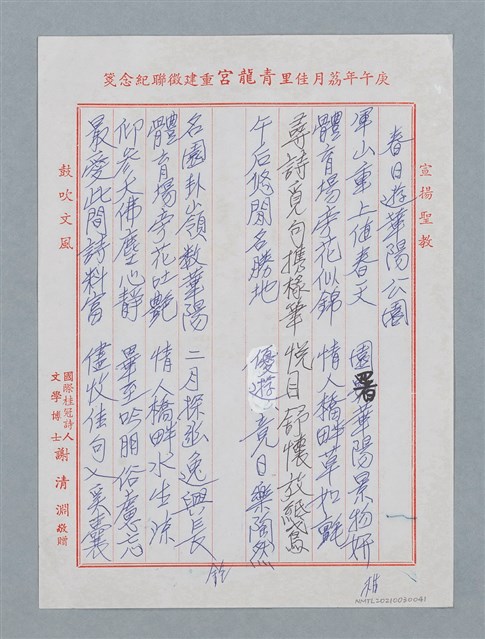 庚午年荔月佳里青龍宮重建徵聯紀念箋
宣揚聖教
春日遊華陽公園
軍山重上值春天 園署華陽景物妍
體育場旁花似錦 情人橋畔草如氈
尋詩覓句攜椽筆 悅目舒懷放紙鳶
午后悠閒名勝地 優遊竟日樂陶然
名園卦嶺數華陽 二月探幽逸興長
體育場旁花吐艷 情人橋畔水生涼
仰參大佛塵心靜 畢至吟朋俗慮忘
最愛此間詩料富 儘收佳句入奚囊
鼓吹文風
國際桂冠詩人
文學博士
謝清淵敬贈
NMTL20210030041